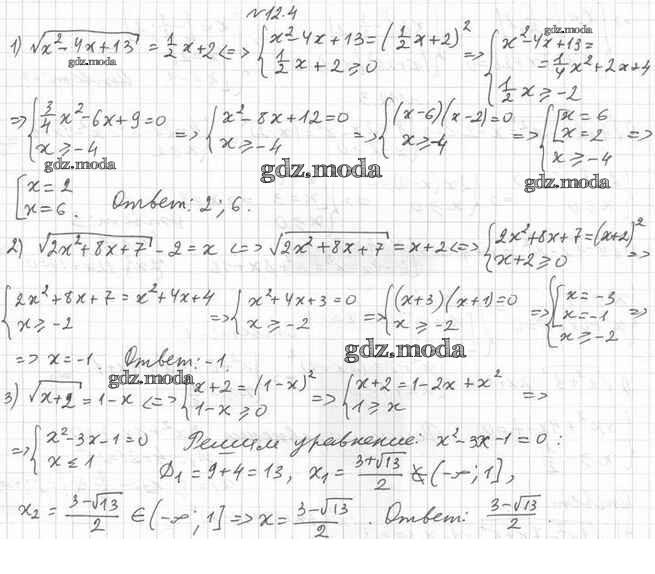 №12.4
1) √(x²-4x+13) = 1/2 x+2 <=> { x²-4x+13=(1/2 x+2)² ; 1/2 x+2⩾0 => { x²-4x+13= =1/4 x²+2x+4 ; 1/2 x⩾-2
=> { 3/4 x²-6x+9=0 ; x⩾-4 => { x²-8x+12=0 ; x⩾-4 => { (x-6)(x-2)=0 ; x⩾-4 => { [ x=6 ; x=2 ; x⩾-4 =>
[ x=2 ; x=6. Ответ: 2; 6.
2) √(2x²+8x+7) -2=x <=> √(2x²+8x+7) = x+2 <=> { 2x²+8x+7=(x+2)² ; x+2⩾0 =>
{ 2x²+8x+7=x²+4x+4 ; x⩾-2 => { x²+4x+3=0 ; x⩾-2 => { (x+3)(x+1)=0 ; x⩾-2 => { [ x=-3 ; x=-1 ; x⩾-2 =>
=> x=-1. Ответ: -1.
3) √(x+2) = 1-x <=> { x+2=(1-x)² ; 1-x⩾0 => { x+2=1-2x+x² ; 1⩾x =>
=> { x²-3x-1=0 ; x⩽1 Решим уравнение: x²-3x-1=0:
Д₁=9+4=13, x₁= (3+√13)/2 ∉ (-∞; 1],
x₂= (3-√13)/2 ∈ (-∞; 1] => x= (3-√13)/2. Ответ: (3-√13)/2.
gdz.moda
gdz.moda
gdz.moda
gdz.moda
gdz.moda
gdz.moda
gdz.moda